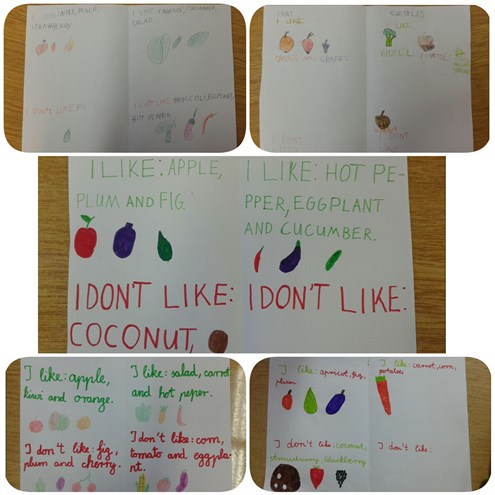 APPLE, PEACH,
STRAWBERRY
I LIKE CARROT, CUCUMBER,
SALAD
I DON'T LIKE FIG
I DON'T LIKE BROCCOLI, EGGPLANT,
HOT PEPPER
I LIKE
GRAPES
LIKE
BROCCOLI
POTATOES
I DON'T
I LIKE: APPLE,
PLUM AND FIG.
I DON'T LIKE:
COCONUT,
I LIKE: HOT PE-
PPER, EGGPLANT
AND CUCUMBER.
I DON'T LIKE:
I like: apple,
kiwi and orange.
I don't like: fig,
plum and cherry.
I like: salad, carrot
and hot peper.
I don't like: corn,
tomato and eggpla-
nt.
I like: apricot, fig,
plum
I don't like: coconut,
strawberry, blackberry
I like: carrot, corn,
potatoes
I don't like: